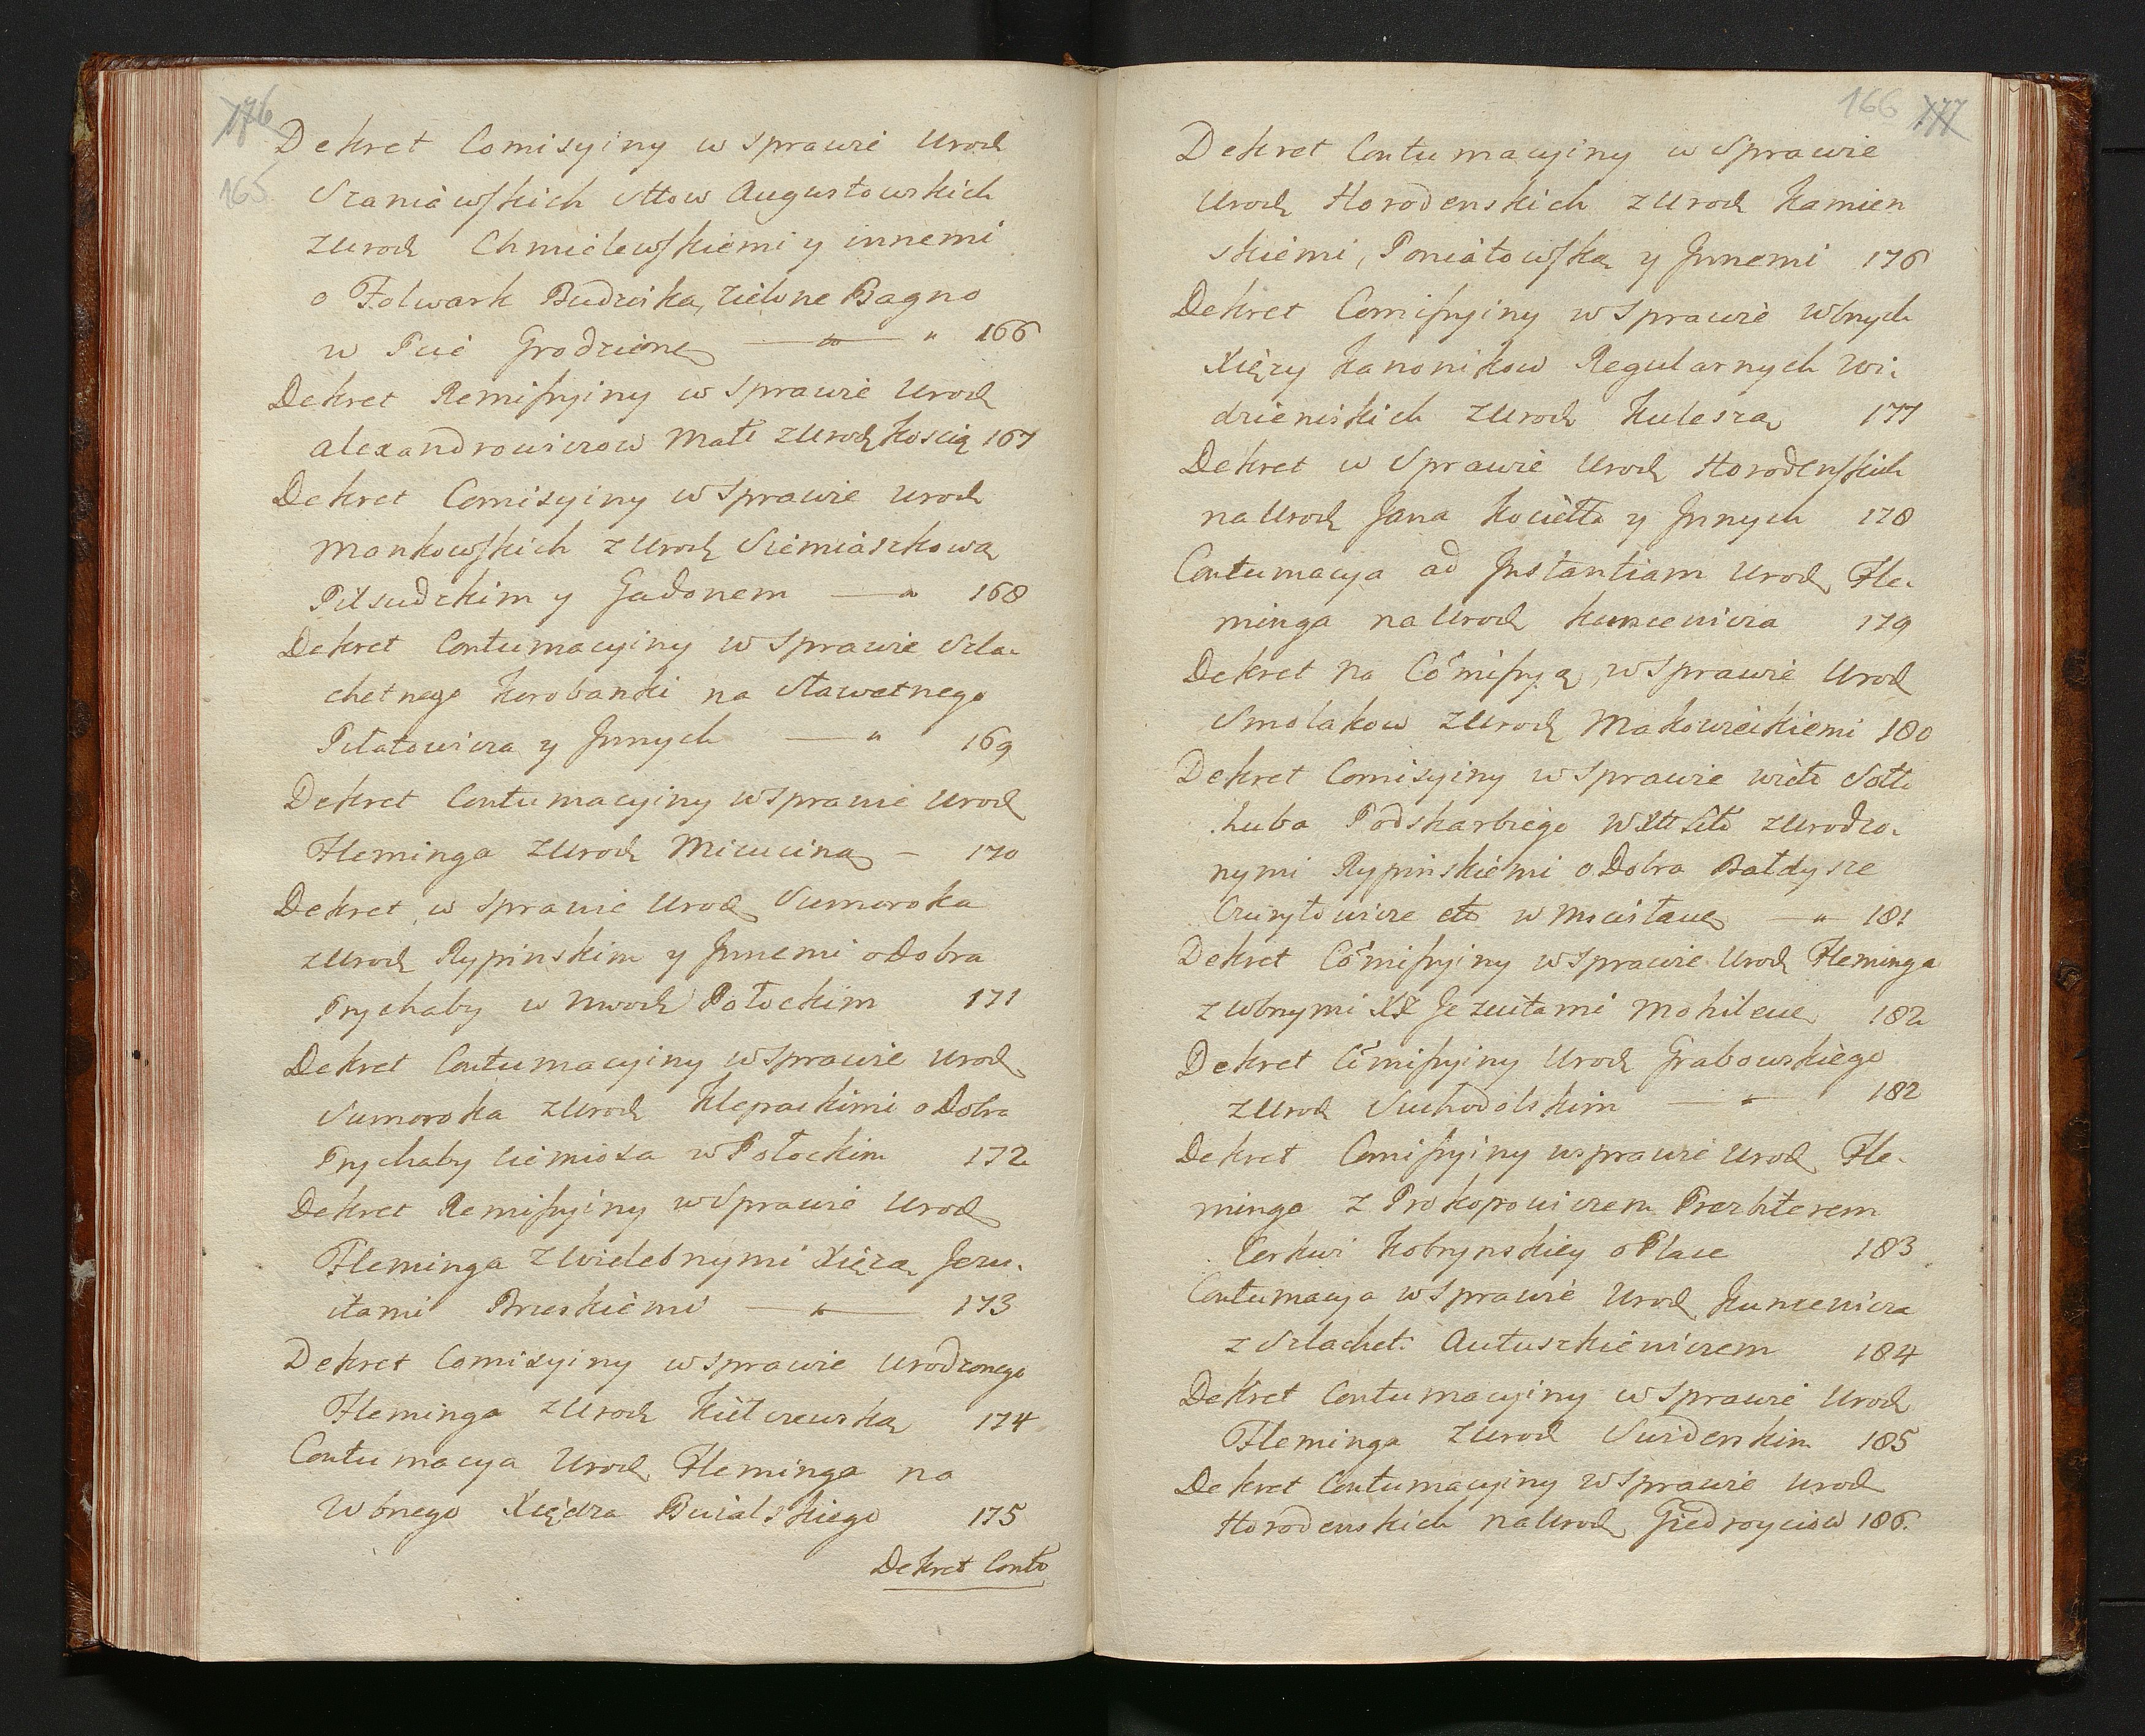 176
165
Dekret Comisyiny w Sprawie Urodz
Szaniawskich Sttow Augustowskich
z Urodz Chmielewskiemi y innemi
o Folwark Budziska, Zielone Bagno
w Pcie Grodzienę — " 166
Dekret Remissyiny w Sprawie Urodz
Alexandrowiczow Matł z Urodz Koscią 167
Dekret Comisyiny w Sprawie Urodz
Mankowskich z Urodz Siemiaszkową
Piłsudzkim y Gadonem — " 168
Dekret Contumacyiny w Sprawie Szla-
chetnego Korobanki na Sławetnego
Piłatowicza y Jnnych — " 169
Dekret Contumacyiny w Sprawie Urodz
Fleminga z Urodz Micuciną — 170
Dekret w Sprawie Urodz Sumoroka
z Urodz Rypinskim y Jnnemi o Dobra
Prychaby w Nwodz Połockim 171
Dekret Contumacyiny w Sprawie Urodz
Sumoroka z Urodz Klepackimi o Dobra
Prychaby Ciemiosa w Połockim 172
Dekret Remissyiny w Sprawie Urodz
Fleminga z Wielebnymi Xiężą Jezu-
itami Brzeskiemi — " 173
Dekret Comisyiny w Sprawie Urodzonego
Fleminga z Urodz Kiełczewską 174
Contumacya Urodz Fleminga na
Wbnego Xiędza Buialskiego 175
Dekret Contu
166 177
Dekret Contumacyiny w Sprawie
Urodz Horodenskich z Urodz Kamien
skiemi, Poniatowską y Jnnemi 176
Dekret Comissyiny w Sprawie Wbnych
Xięży Kanonikow Regularnych Wi-
dzieniskich z Urodz Kuleszą 177
Dekret w Sprawie Urodz Horodenskich
na Urodz Jana Kociełła y Jnnych 178
Contumacya ad Jnstantiam Urodz Fle-
minga na Urodz Kuncewicza 179
Dekret na Comissyą w Sprawie Urodz
Smolakow z Urodz Makowieckiemi 180
Dekret Comisyiny w Sprawie Wielo Sołło
huba Podskarbiego W XLitt z Urodzo-
nymi Rypinskiemi o Dobra Bałdysze
Czuryłowicze etc w Mscisławę — " 181
Dekret Comissyiny w Sprawie Urodz Fleminga
z Wbnymi XX Jezuitami Mohilewę 182
Dekret Comissyiny Urodz Grabowskiego
z Urodz Suchodolskim — " 182
Dekret Comissyiny w sprawie Urodz Fle-
minga z Prokopowiczem Prezbiterem
Cerkwi Kobrynskiey o Place 183
Contumacya w Sprawie Urodz Kuncewicza
z Szlachet: Autuszkiewiczem 184
Dekret Contumacyiny w Sprawie Urodz
Fleminga z Urodz Swiderskim 185
Dekret Contumacyiny w Sprawie Urodz
Horodenskich na Urodz Giedroyciow 186.